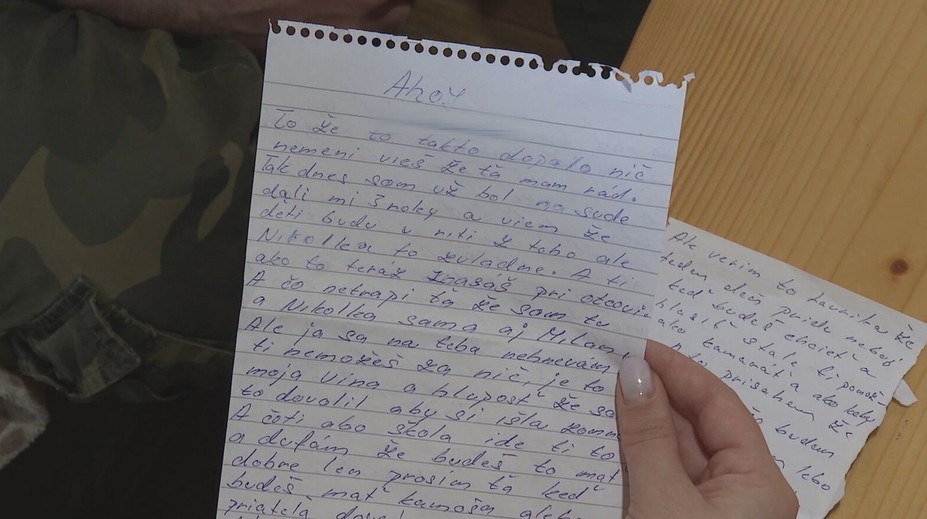 Ahoj
To že to takto dopalo nič
nemeni vieš že ťa mam rád.
Tak dnes som už bol na sude
dali mi 3 roky a viem že
děti budu v riti z toho ale
Nikolka to zvladne. A ti
ako to teráz znašáš pri otcovi
A čo netrapi ťa že som tu
a Nikolka sama aj Milan
Ale ja sa na teba nehnevám
ti nemôžeš za nič, je to
moja vina a hluposť že so
to dovolil aby si išla domm
A čoti abo škola ide ti to
a dufám že budeš to mať
dobre len prosim ťa keď
budeš mať kamoša alebo
priatela
Ale verim to Nikolka že
jeden deň pride
keď budeš chcieť a
stale ti pomož
ako kamarát a ako keby
prisahem že
budem
lebo